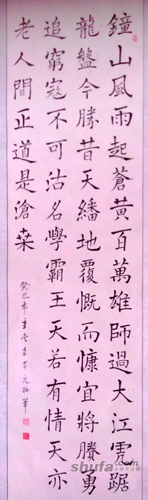 鐘山風雨起蒼黄百萬雄師過大江虎踞
龍盤今勝昔天繙地覆慨而慷宜將賸勇
追窮寇不可沽名學霸王天若有情天亦
老人間正道是滄桒
癸巳年
shufa.com